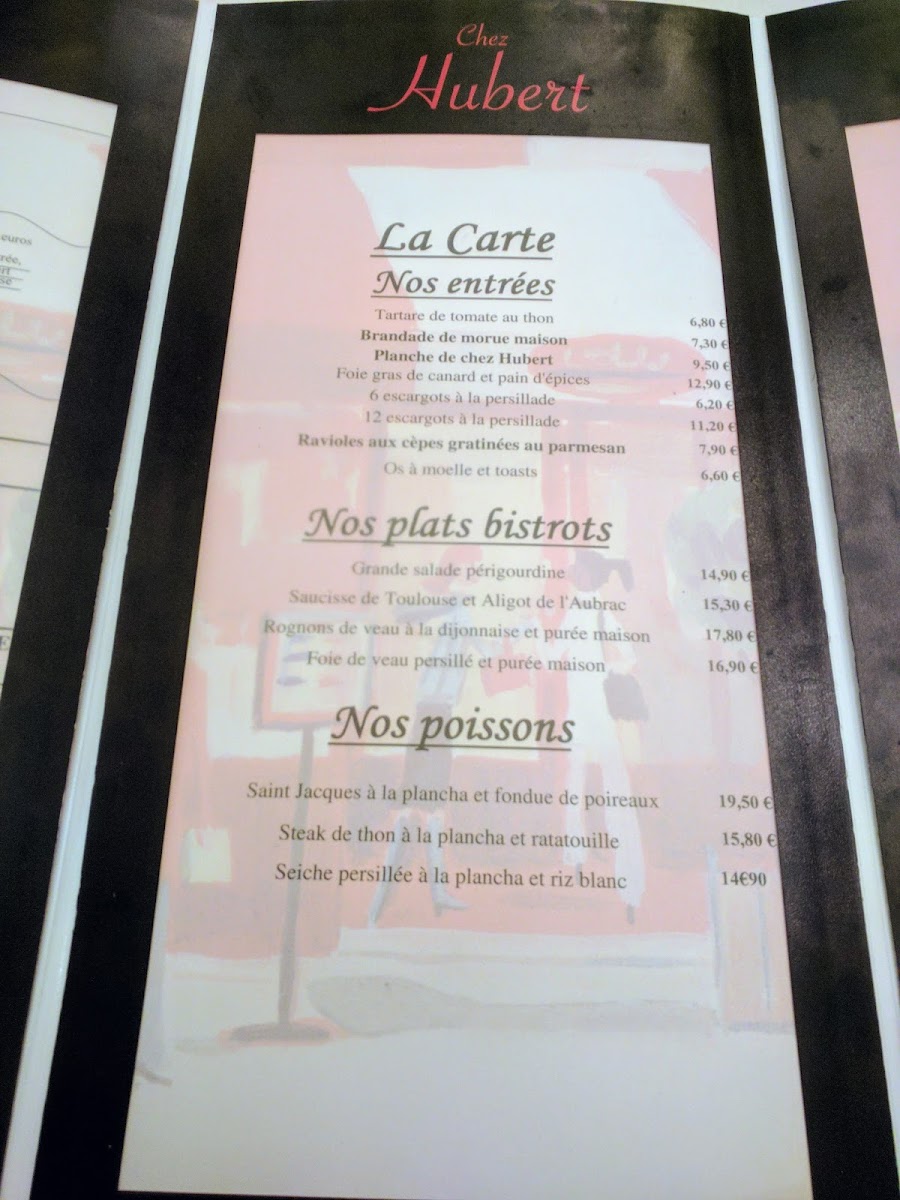 Chez
Hubert
La Carte
Nos entrées
Tartare de tomate au thon 6,80 €
Brandade de morue maison 7,30 €
Planche de chez Hubert 9,50 €
Foie gras de canard et pain d'épices 12,90 €
6 escargots à la persillade 6,20 €
12 escargots à la persillade 11,20 €
Ravioles aux cèpes gratinées au parmesan 7,90 €
Os à moelle et toasts 6,60 €
Nos plats bistrots
Grande salade périgourdine 14,90 €
Saucisse de Toulouse et Aligot de l'Aubrac 15,30 €
Rognons de veau à la dijonnaise et purée maison 17,80 €
Foie de veau persillé et purée maison 16,90 €
Nos poissons
Saint Jacques à la plancha et fondue de poireaux 19,50 €
Steak de thon à la plancha et ratatouille 15,80 €
Seiche persillée à la plancha et riz blanc 14€90
euros